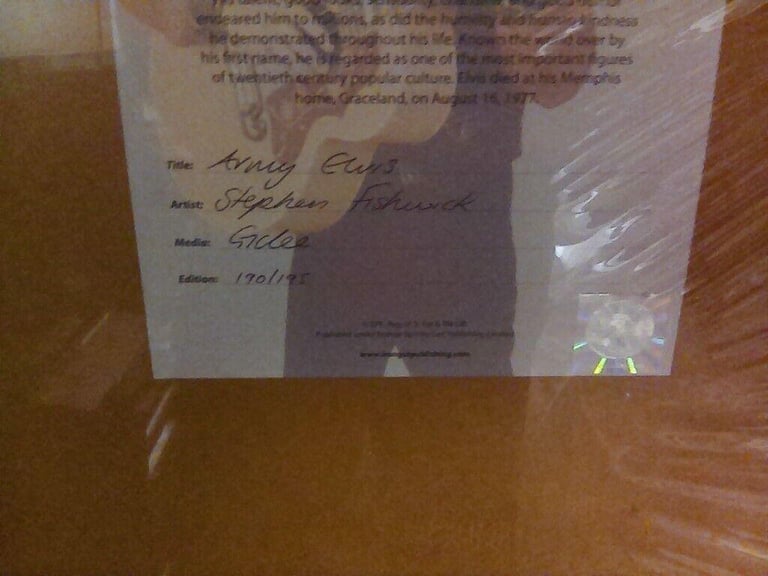 good looks, sensuality, and good humor
endeared him to millions, as did the humility and human kindness
he demonstrated throughout his life. Known the world over by
his first name, he is regarded as one of the most important figures
of twentieth century popular culture. Elvis died at his Memphis
home, Graceland, on August 16, 1977.
Title: Army Elvis
Artist: Stephen Fishwick
Media: Giclee
Edition: 190/195